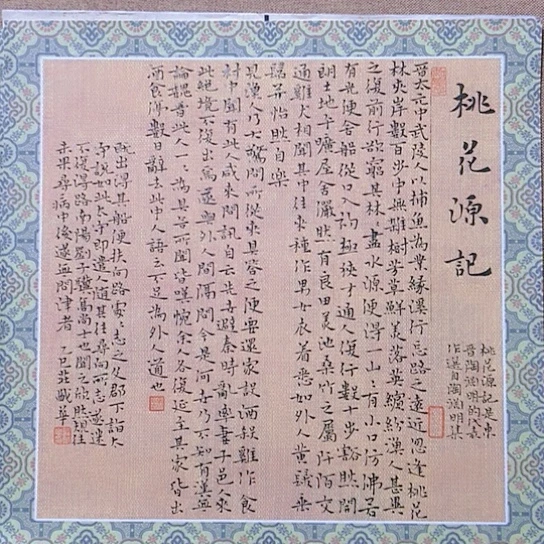 桃花源記
桃花源記是東
晉陶淵明的代表
作選自陶淵明集
晉太元中武陵人以捕魚為業緣溪行忘路之遠近忽逢桃花
林夾岸數百步中無雜樹芳草鮮美落英繽紛漁人甚異
之復前行欲窮其林盡水源便得一山山有小口仿佛若
有光便舍船從口入初極狹才通人復行數十步豁然開
朗土地平曠屋舍儼然有良田美池桑竹之屬阡陌交
通雞犬相聞其中往來種作男女衣着悉如外人黃髮垂
髫并怡然自樂
見漁人乃大驚問所從來具答之便要還家設酒殺雞作食
村中聞有此人咸來問訊自云先世避秦時亂率妻子邑人來
此絕境不復出焉遂與外人間隔問今是何世乃不知有漢無
論魏晉此人一一為具言所聞皆嘆惋余人各復延至其家皆出
酒食停數日辭去此中人語云不足為外人道也
既出得其船便扶向路處處志之及郡下詣太
守說如此太守即遣人隨其往尋向所志遂迷
不復得路南陽劉子驥高尚士也聞之欣然規往
未果尋病中後遂無問津者 乙巳